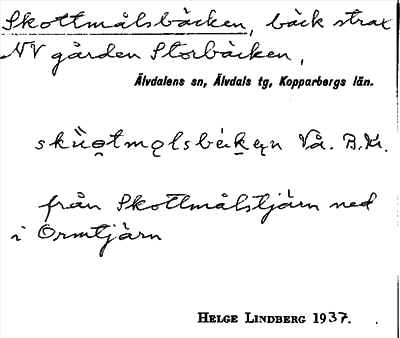 Skottmålsbäcken, bäck strax
NV gården Storbäcken,
Älvdalens sn, Älvdals tg, Kopparbergs län.
Vå. B.Kr.
från Skottmålstjärn ned
i Ormtjärn
HELGE LINDBERG 1937.